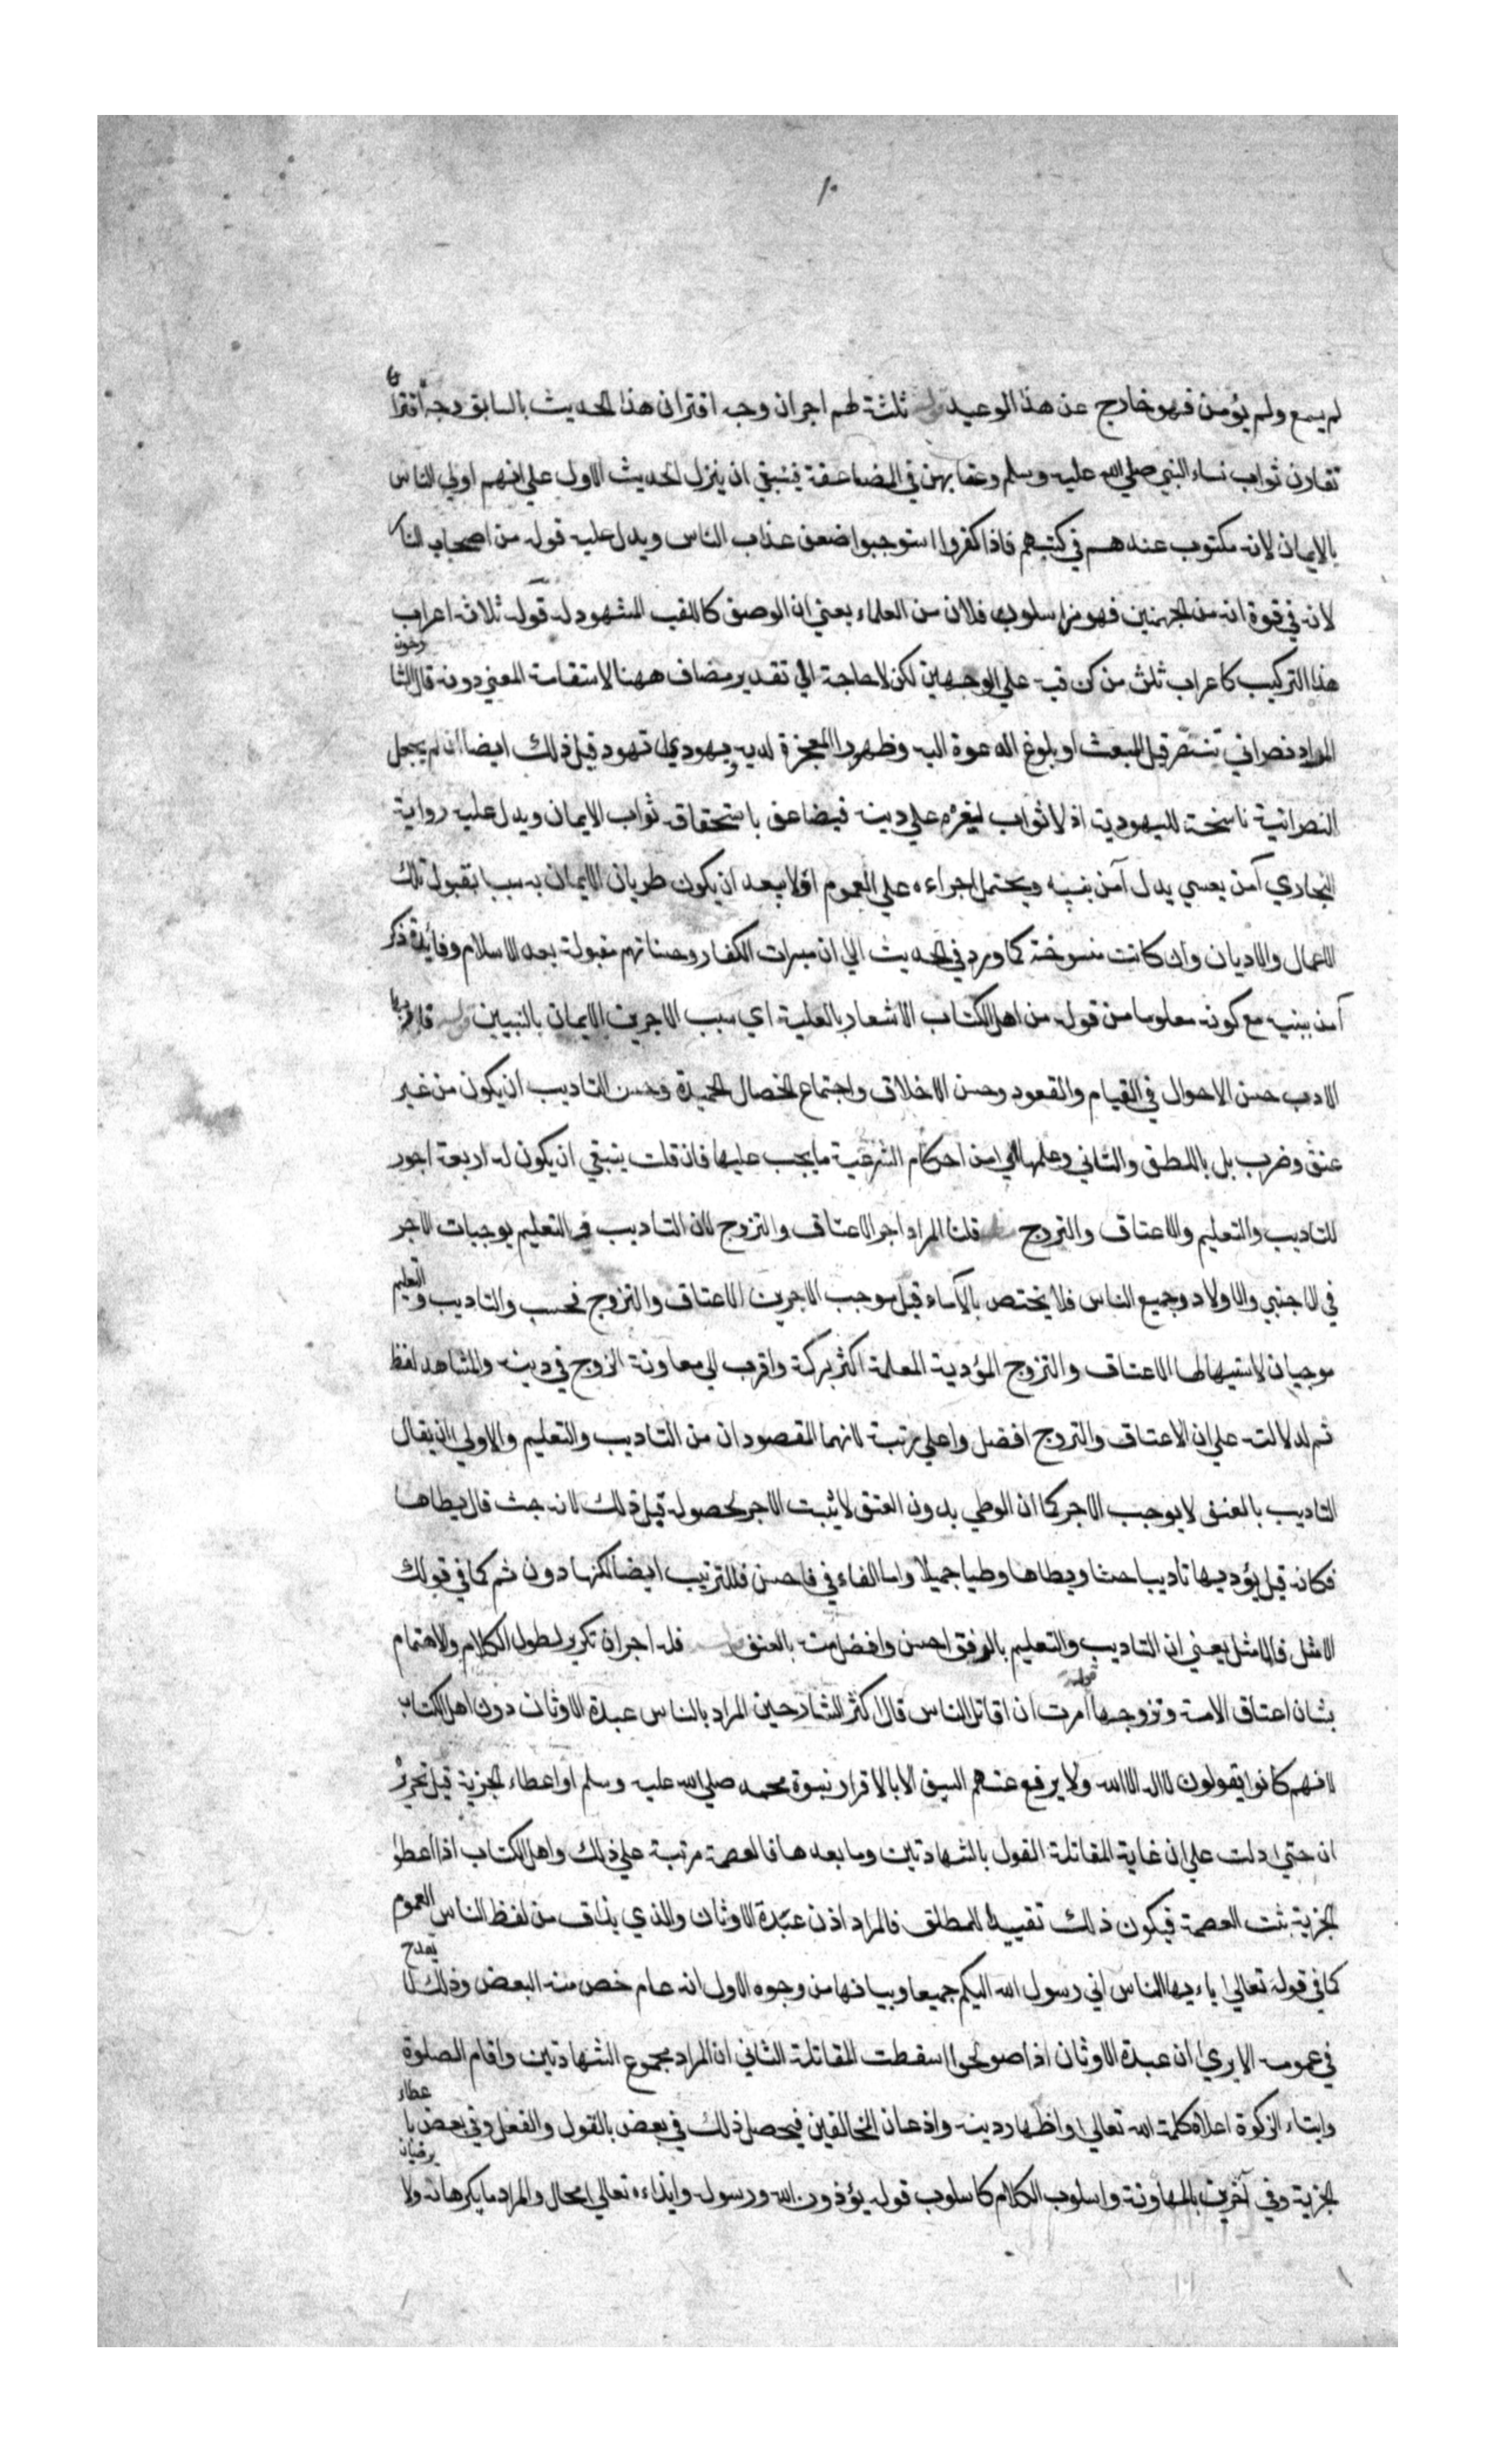 ١٠
لم يسمع ولم يؤمن فهو خارج عن هذا الوعيد قوله ثلثة لهم اجران وجه اقتران هذا الحديث بالسابق وجه اقتران
تقارن ثواب نساء النبي صلي الله عليه وسلم وعقابهن في المضاعفة فينبغي ان ينزل الحديث الاول علي انهم اولي الناس
بالايمان لانه مكتوب عندهم في كتبهم فاذا كفروا استوجبوا ضعف عذاب الناس ويدل عليه قوله من اصحاب النار
لانه في قوة انه من الجهنميين فهو من اسلوب فلان من العلماء يعني ان الوصف كاللقب المشهود له قوله ثلاثة اعراب
هذا التركيب كاعراب ثلث من كن فيه علي الوجهين لكن لا حاجة الي تقدير مضاف ههنا لاستقامة المعني دونه قال الشارحون
المراد نصراني تنصر قبل المبعث او بلوغ الدعوة اليه وظهور المعجزة لديه ويهودي تهود قبل ذلك ايضا ان لم يجعل
النصرانية ناسخة لليهودية اذ لا ثواب لغيره علي دينه فيضاعف باستحقاق ثواب الايمان ويدل عليه رواية
البخاري آمن بعيسي بدل آمن بنبيه ويحتمل اجراءه علي العموم اذ لا يبعد ان يكون طريان الايمان به سببا لقبول تلك
الاعمال والاديان وان كانت منسوخة كما ورد في الحديث الي ان مبرات الكفار وحسناتهم مقبولة بعد الاسلام وفائدة ذكر
آمن بنبيه مع كونه معلوما من قوله من اهل الكتاب الاشعار بالعلية اي سبب الاجرين الايمان بالنبيين قوله
الادب حسن الاحوال في القيام والقعود وحسن الاخلاق واجتماع الخصال الحميدة وحسن التاديب ان يكون من غير
عنف وضرب بل باللطف والتاني وعلمها اي من احكام الشرعية ما يجب عليها فان قلت ينبغي ان يكون له اربعة اجور
للتاديب والتعليم والاعتاق والتزوج قلنا المراد اجر الاعتاق والتزوج لان التاديب والتعليم يوجبان الاجر
في الاجنبي والاولاد وجميع الناس فلا يختص بالاماء قيل موجب الاجرين الاعتاق والتزوج فحسب والتاديب والتعليم
موجبان لاستيهالها الاعتاق والتزوج المؤدبة المعلمة اكثر بركة واقرب الي معاونة الزوج في دينه والمشاهد لفظ
ثم لدلالته علي ان الاعتاق والتزوج افضل واعلي رتبة لانهما المقصودان من التاديب والتعليم والاولي ان يقال
التاديب بالعنف لا يوجب الاجر كما ان الوطي بدون العتق لا يثبت الاجر لحصوله قبل ذلك لانه حث قال يطاها
فكانه قيل يؤدبها تاديبا حسنا ويطاها وطيا جميلا واما الفاء في فاحسن فللترتيب ايضا لكنها دون ثم كما في قولك
الامثل فالامثل يعني ان التاديب والتعليم بالرفق احسن وافضل منه بالعنف قوله فله اجران تكرير لطول الكلام والاهتمام
بشان اعتاق الامة وتزوجها قوله امرت ان اقاتل الناس قال اكثر الشارحين المراد بالناس عبدة الاوثان دون اهل الكتاب
لانهم كانوا يقولون لا اله الا الله ولا يرفع عنهم السيف الا بالاقرار بنبوة محمد صلي الله عليه وسلم او اعطاء الجزية قيل تحريره
ان حتي دلت علي ان غاية المقاتلة القول بالشهادتين وما بعدها فالعصمة مرتبة علي ذلك واهل الكتاب اذا اعطوا
الجزية ثبت العصمة فيكون ذلك تقييدا للمطلق فالمراد اذن عبدة الاوثان والذي يذاق من لفظ الناس العموم
كما في قوله تعالي يا ءيها الناس اني رسول الله اليكم جميعا وبيانها من وجوه الاول انه عام خص منه البعض وذلك لا يقدح
في عمومه الا يري ان عبدة الاوثان اذا صولحوا سقطت المقاتلة الثاني ان المراد مجموع الشهادتين واقام الصلوة
وايتاء الزكوة اعلاء كلمة الله تعالي واظهار دينه واذعان المخالفين فيحصل ذلك في بعض بالقول والفعل وفي بعض باعطاء
الجزية وفي آخرين بالمهاونة واسلوب الكلام كاسلوب قوله يؤذون الله ورسوله وايذاءه تعالي محال والمراد ما يكرهانه ولا يرضيانه